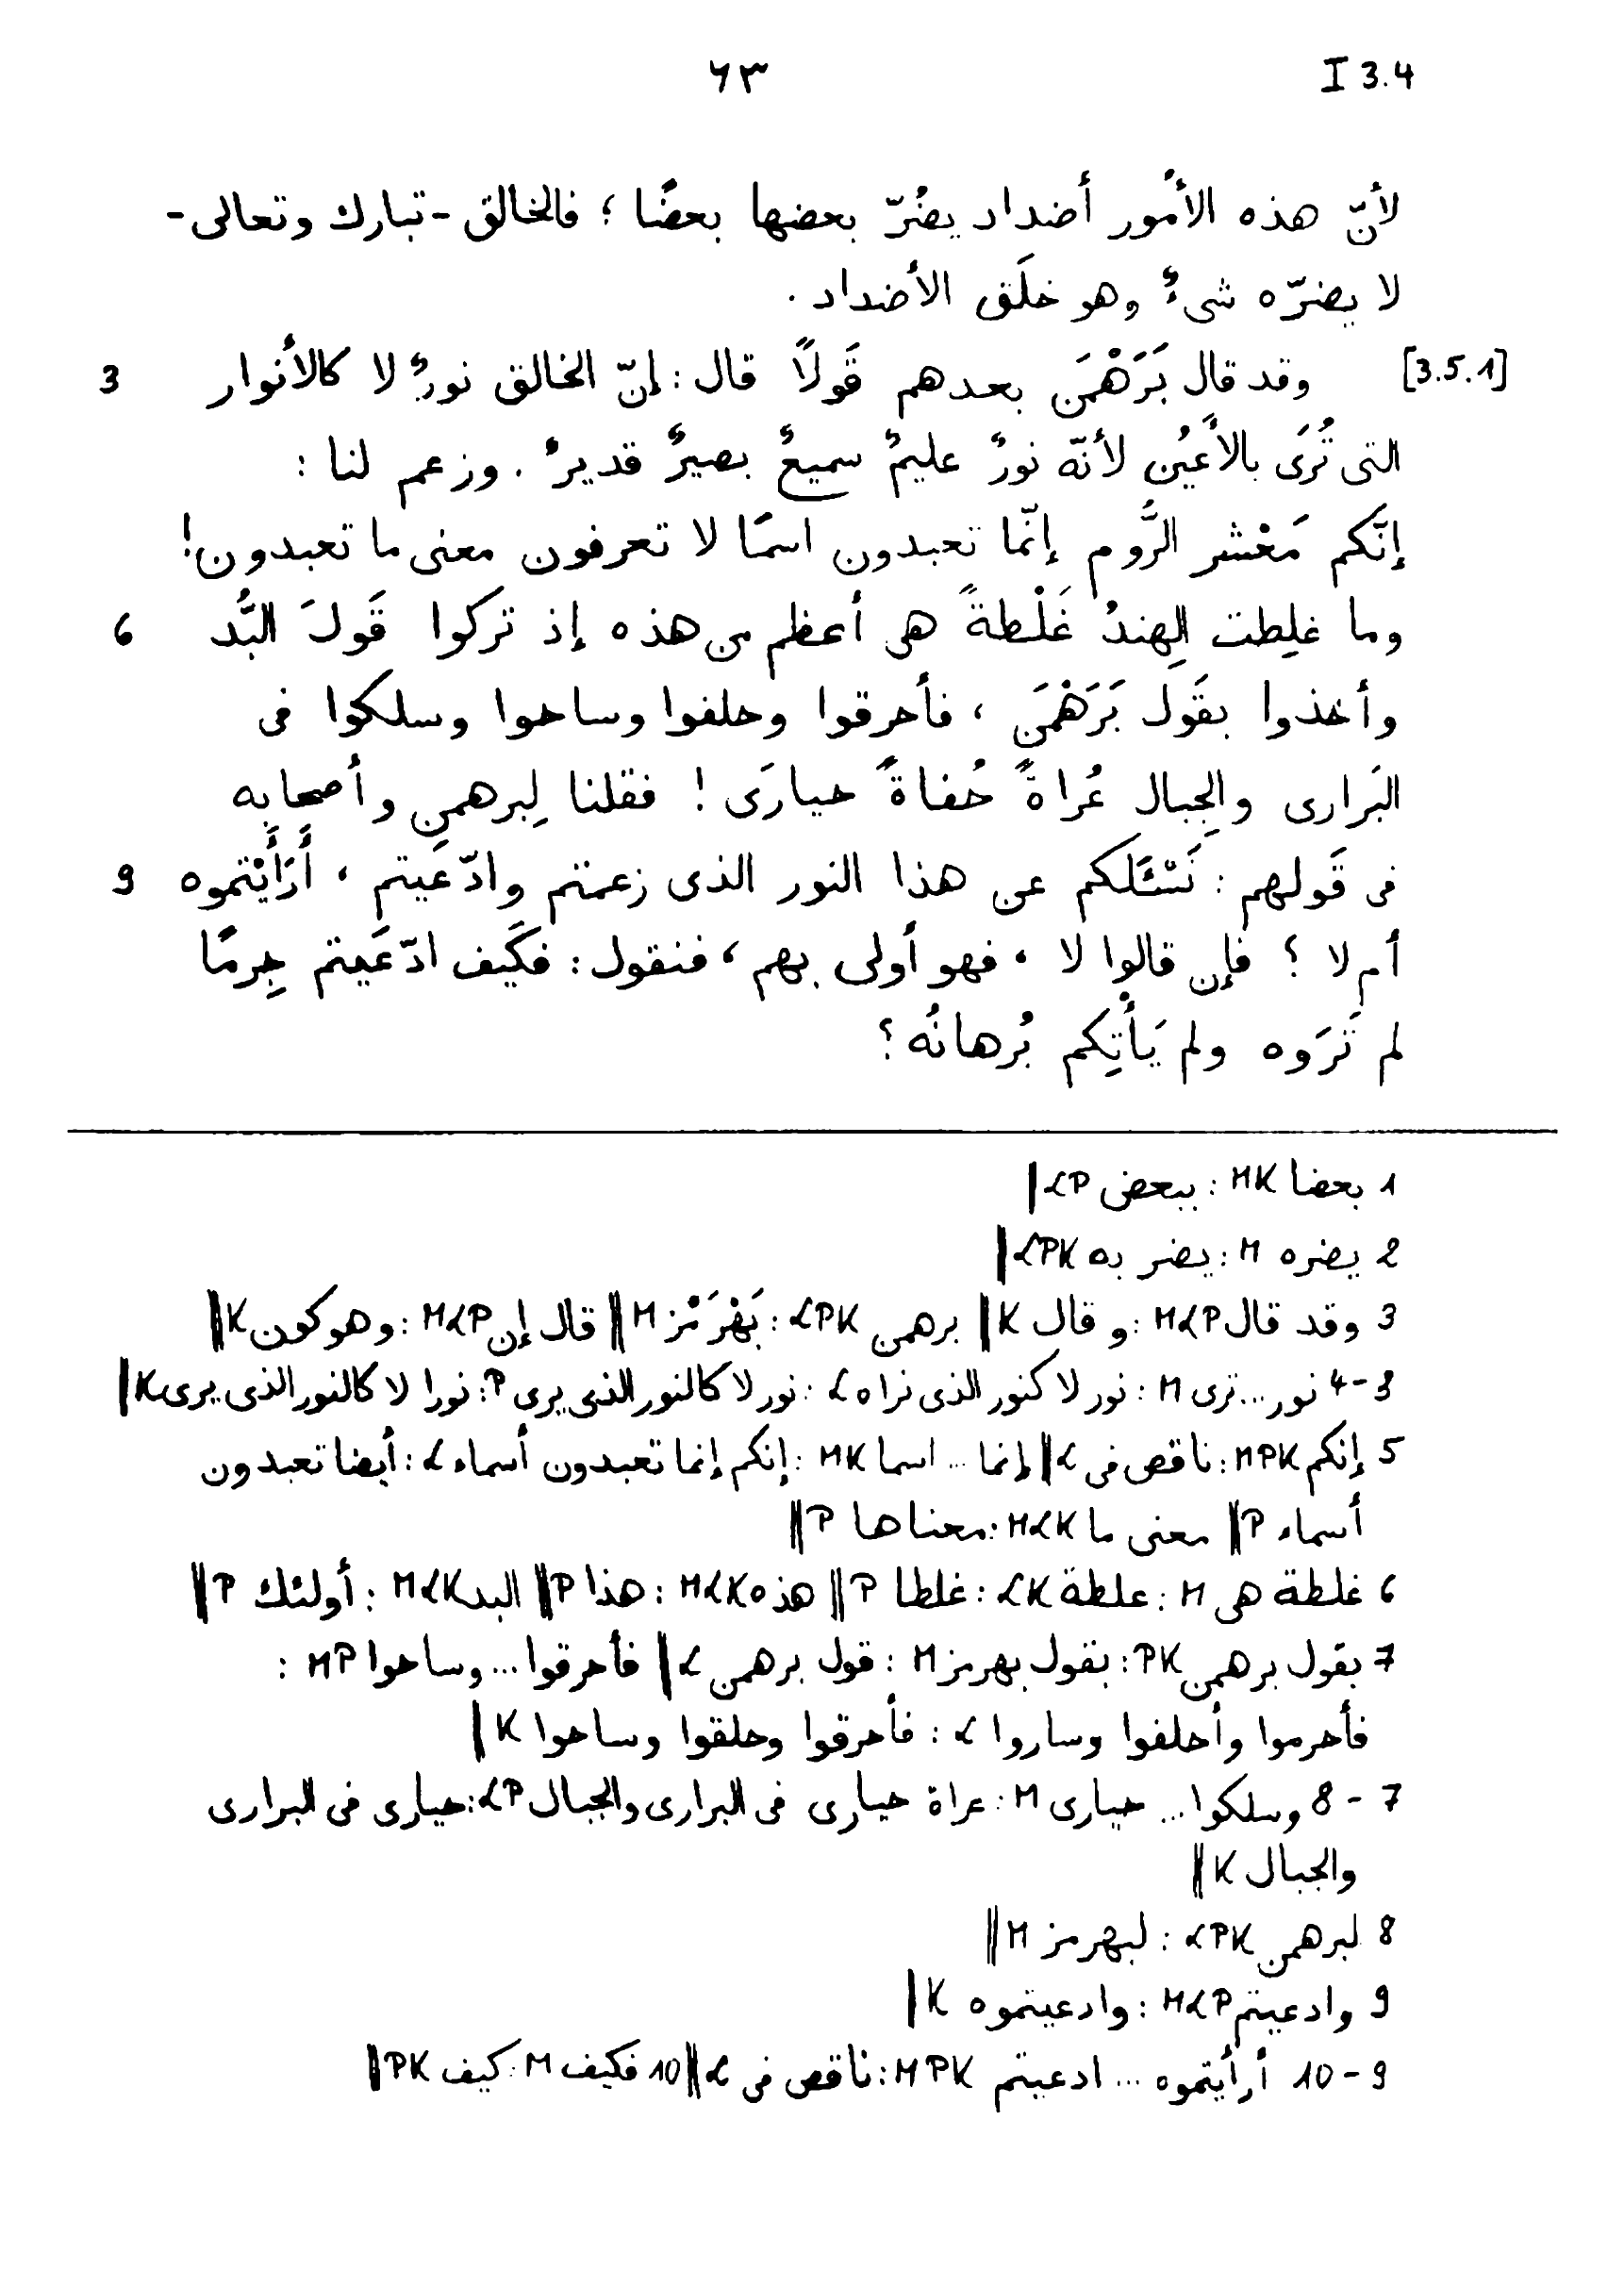 ٦٣ I 3.4
لأنّ هذه الأُمور أضداد يضُرّ بعضها بعضًا ؛ فالخالق -تبارك وتعالى-
لا يضرّه شىءٌ وهو خلَق الأضداد .
[3.5.1] وقد قال بَرَهْمَن بعدهم قَولًا قال : إنّ الخالق نورٌ لا كالأنوار 3
التى تُرَى بالأَعيُن لأنّه نورٌ عليمٌ سميعٌ بصيرٌ قديرٌ . وزعم لنا :
إنّكم مَعْشر الرُّوم إنّما تعبدون اسمًا لا تعرفون معنى ما تعبدون!
وما غلِطت الهِندُ غَلْطةً هى أعظم من هذه إذ تركوا قَولَ البُّد 6
وأخذوا بقَول بَرَهْمَن ، فأحرقوا وحلفوا وساحوا وسلكوا فى
البَرارى والجِبال عُراةً حُفاةً حيارَى ! فقلنا لِبرهمن وأصحابِه
فى قَولهم : نَسْئَلكم عن هذا النور الذى زعمتم وادّعَيتم ، أَرَأَيْتموه 9
أم لا ؟ فإن قالوا لا ، فهو أولى بهم ، فنقول : فكَيف ادّعَيتم جِرمًا
لم تَرَوه ولم يَأْتِكم بُرهانُه ؟
1 بعضا MK : ببعض LP ||
2 يضره M : يضر به LPK ||
3 وقد قال MLP : وقال K || برهمن LPK : بَهْرَمْز M || قال إن MLP : وهو كون K ||
3-4 نور ... ترى M : نور لا كنور الذى نراه L : نور لا كالنور الذى يرى P : نورا لا كالنور الذى يرى K ||
5 إنكم MPK : ناقص فى L || إنما ... اسما MK : إنكم إنما تعبدون أسماء L : أيضا تعبدون
أسماء P || معنى ما MLK : معناها P ||
6 غلطة هى M : علطة LK : غلطا P || هذه MLK : هذا P || البد MLK : أولئك P ||
7 بقول برهمن PK : بقول بهرمز M : قول برهمن L || فأحرقوا ... وساحوا MP :
فأحرموا وأحلفوا وساروا L : فأحرقوا وحلقوا وساحوا K ||
7 - 8 وسلكوا ... حيارى M : عراة حيارى فى البرارى والجبال LP : حيارى فى البرارى
والجبال K ||
8 لبرهمن LPK : لبهرمز M ||
9 وادعيتم MLP : وادعيتموه K ||
9 - 10 أرأيتموه ... ادعيتم MPK : ناقص فى L || 10 فكيف M : كيف PK ||